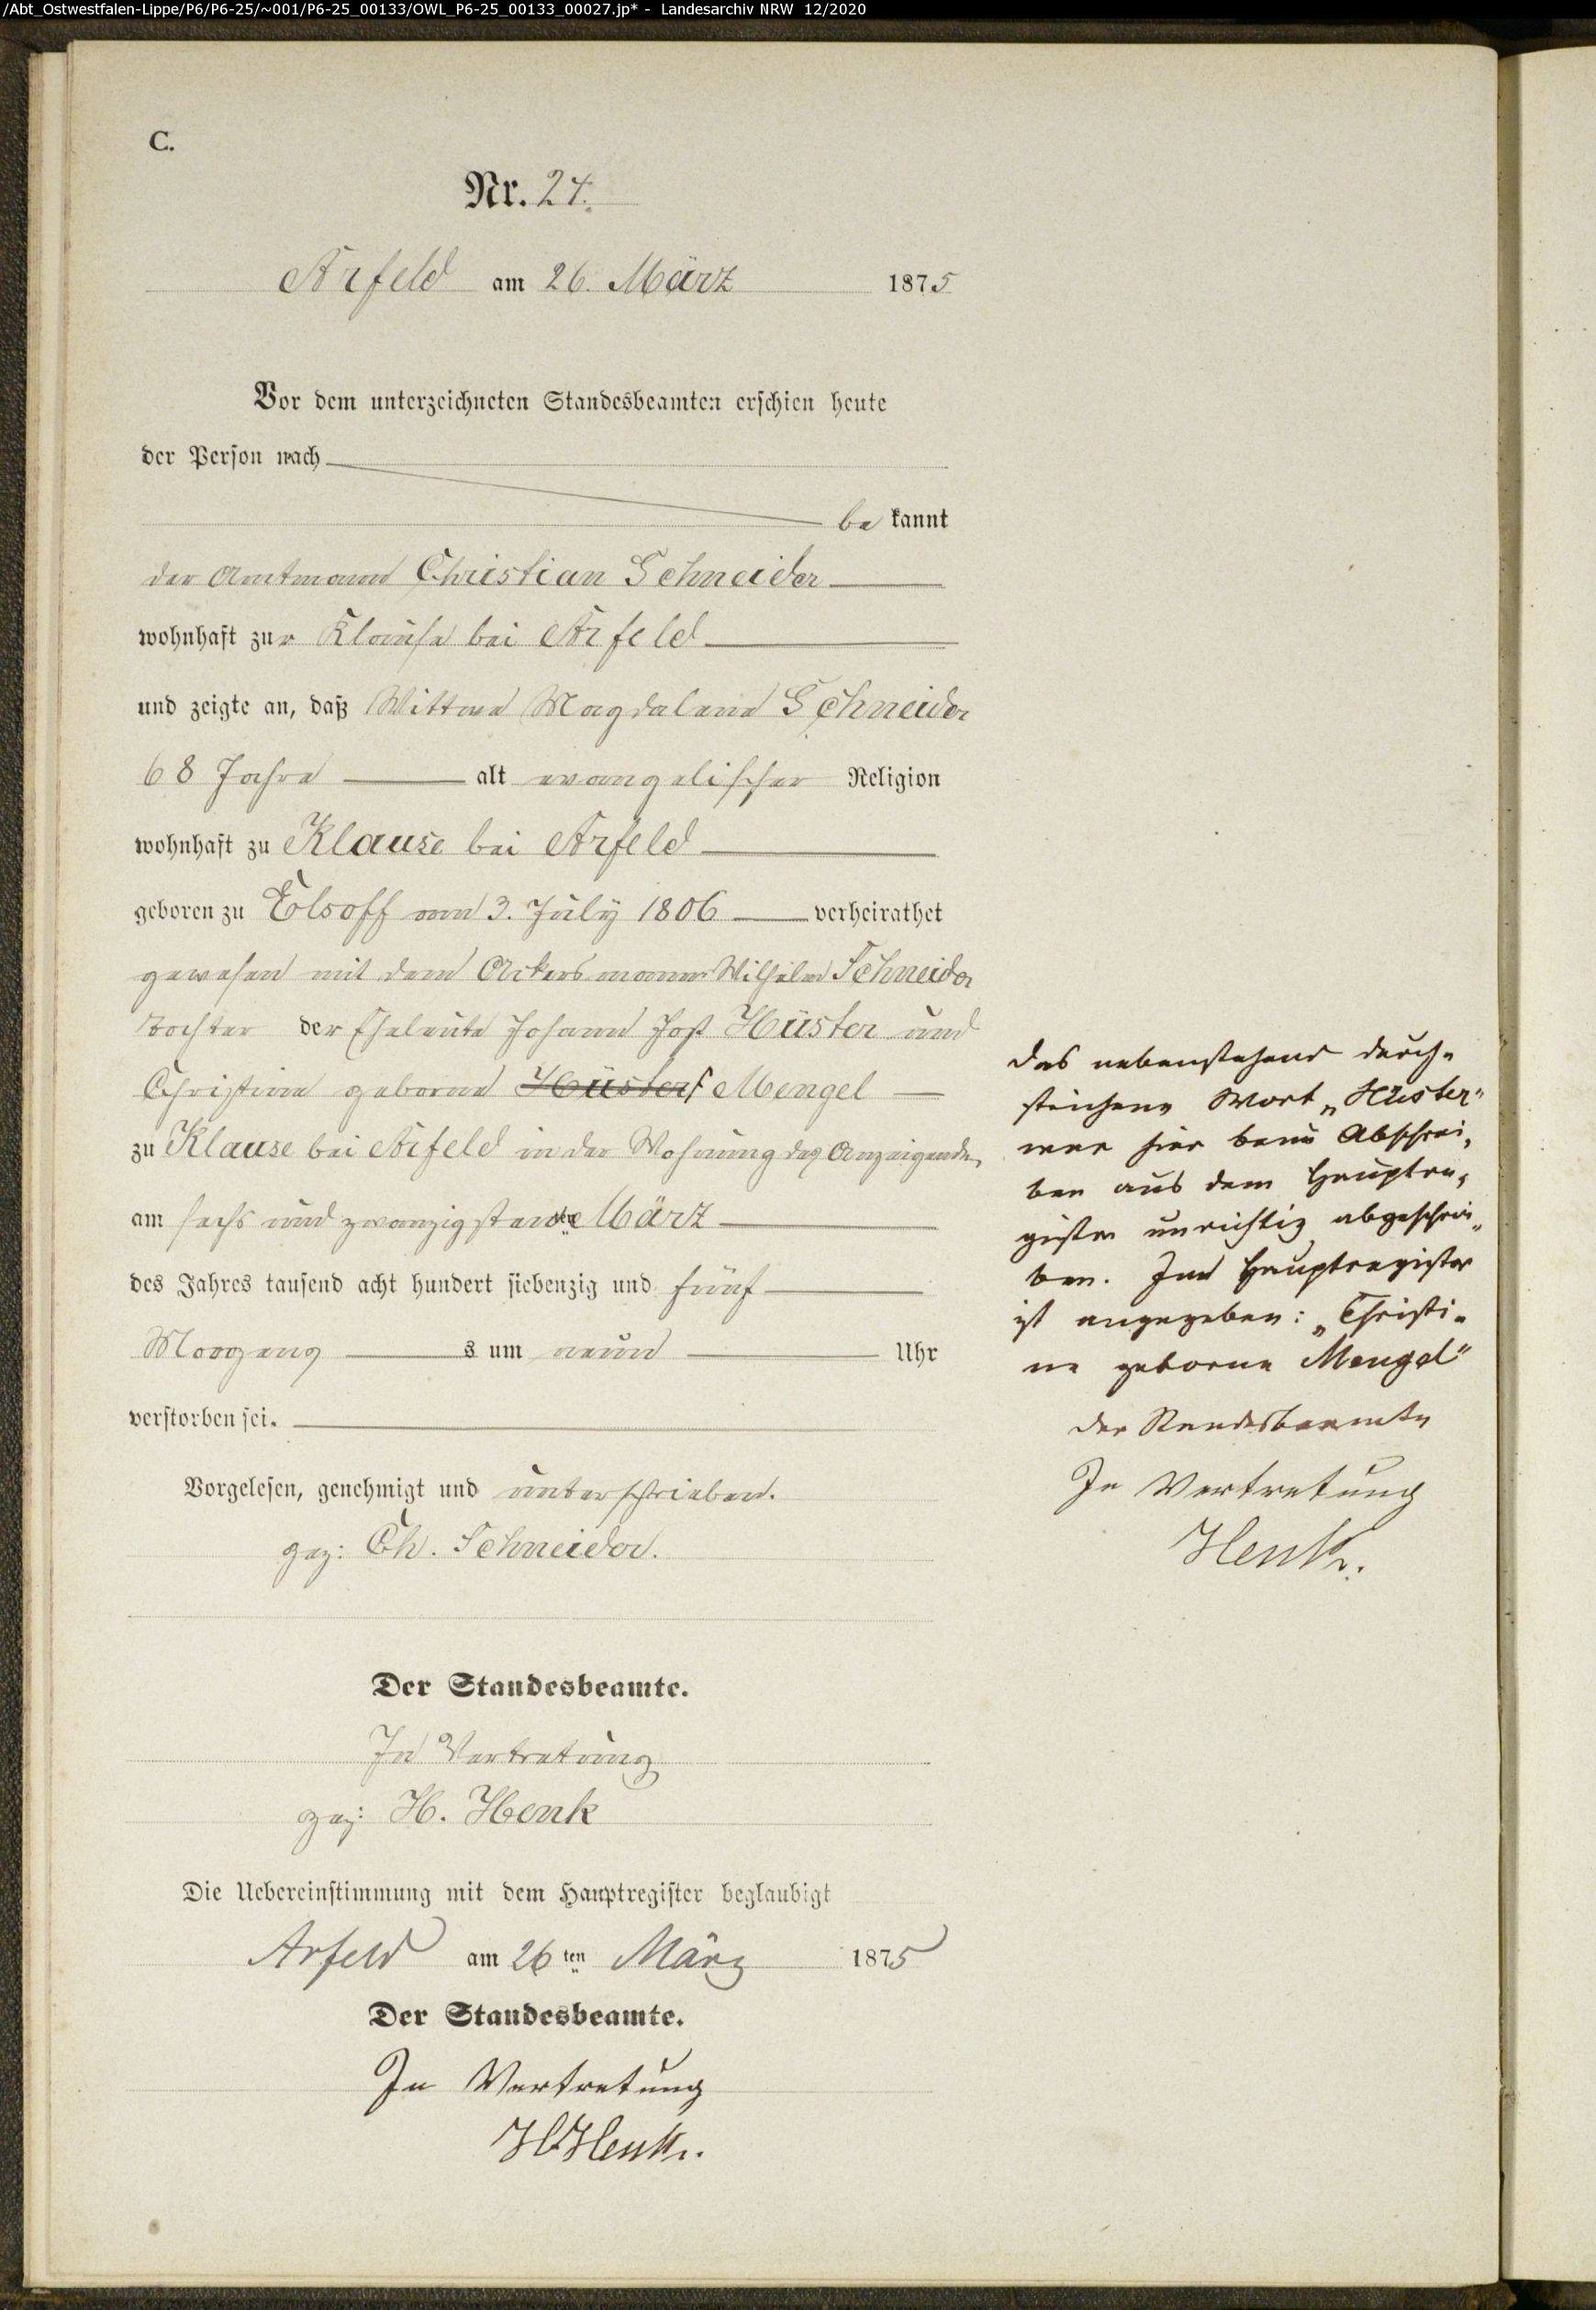 /Abt_Ostwestfalen-Lippe/P6/P6-25/~001/P6-25_00133/OWL_P6-25_00133_00027.jp* - Landesarchiv NRW 12/2020
C.
Nr. 24.
Arfeld am 26. März 1875
Vor dem unterzeichneten Standesbeamten erschien heute
der Person nach
be kannt
der Amtmann Christian Schneider
wohnhaft zur Klause bei Arfeld
und zeigte an, daß Wittwe Magdalene Schneider
68 Jahre alt evangelischer Religion
wohnhaft zu Klause bei Arfeld
geboren zu Elsoff am 3. July 1806 verheirathet
gewesen mit dem Ackersmann Wilhelm Schneider
Tochter der Eheleute Johann Jost Hüster und
Christine geborne Hüster Mengel
zu Klause bei Arfeld in der Wohnung des Anzeigenden
am sechs und zwanzigsten März
des Jahres tausend acht hundert siebenzig und fünf
Morgens um neun Uhr
verstorben sei.
Vorgelesen, genehmigt und unterschrieben.
gez: Ch. Schneider.
Der Standesbeamte.
In Vertretung
gez: H. Henk
Die Uebereinstimmung mit dem Hauptregister beglaubigt
Arfeld am 26 ten März 1875
Der Standesbeamte.
In Vertretung
H. Henk.
Das nebenstehend durch-
strichene Wort „Hüster"
war hier beim Abschrei-
ben aus dem Hauptre-
gister unrichtig abgeschrie-
ben. Im Hauptregister
ist angegeben: „Christi-
ne geborne Mengel"
Der Standesbeamte
In Vertretung
Henk.